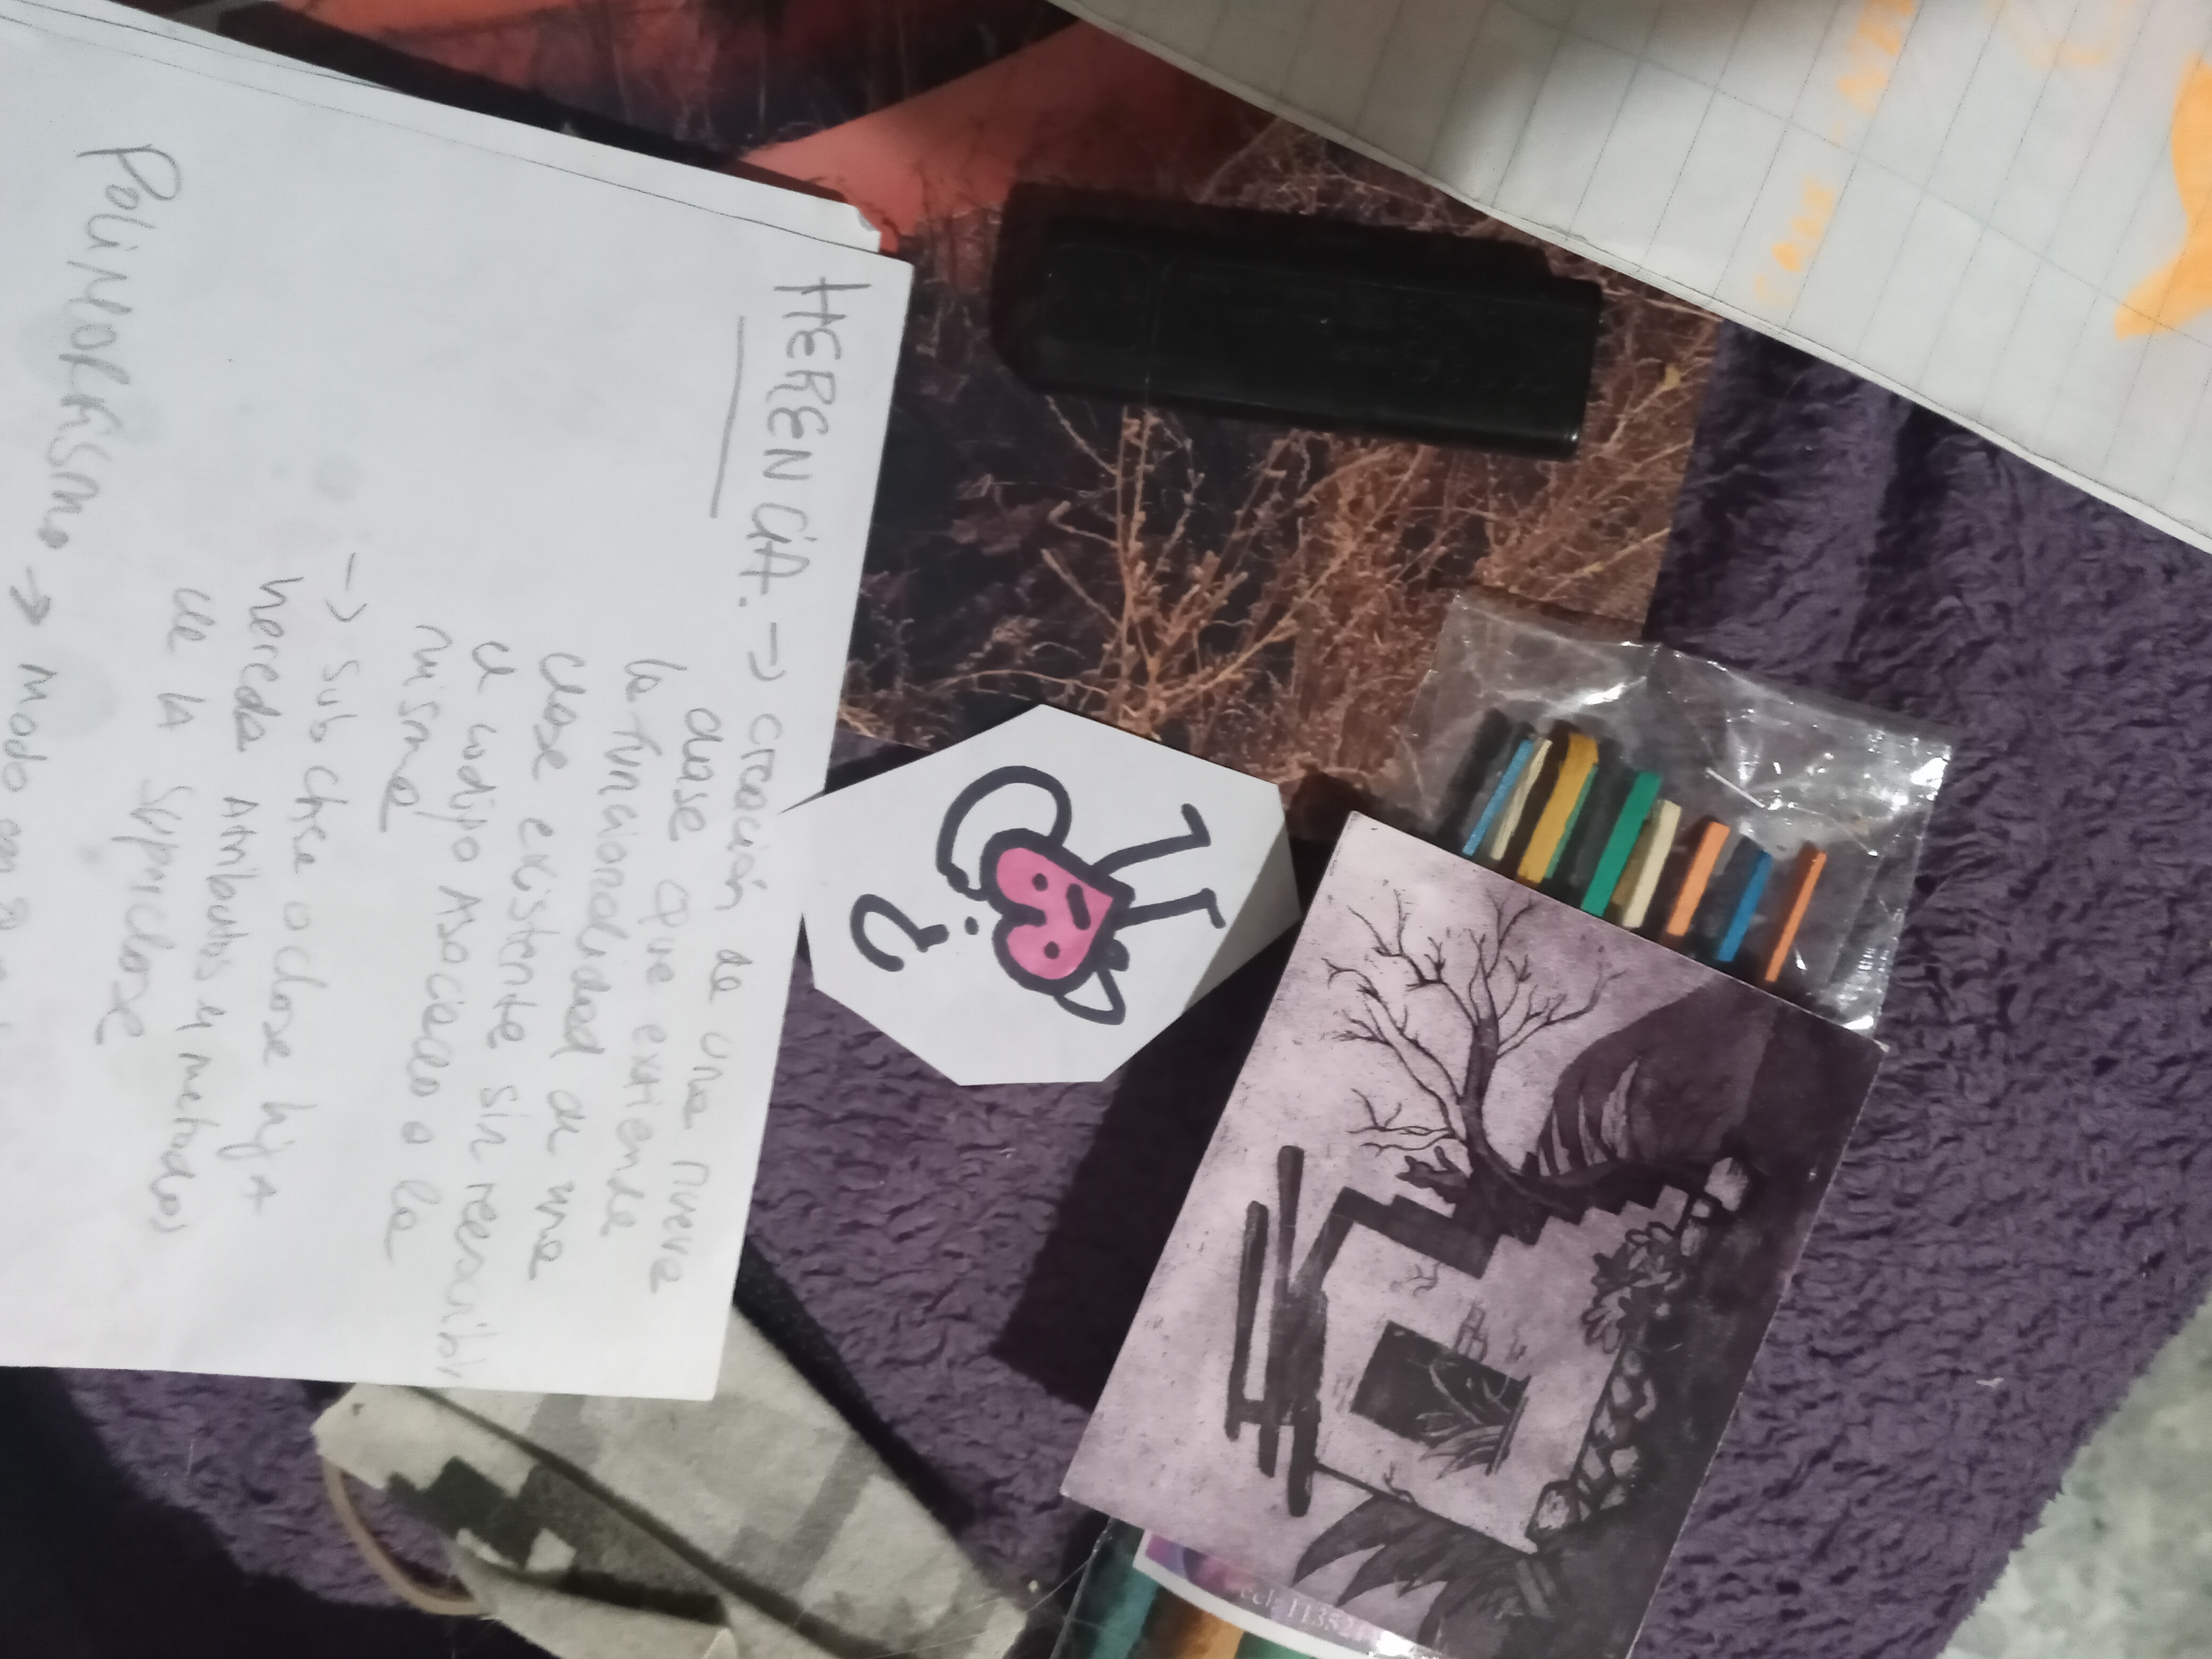 HERENCIA. → creación de una nueva
clase que extiende
la funcionalidad de una
clase existente sin reescribir
el codigo asociado a la
misma
→ sub clase o clase hija
hereda atributos y metodos
de la superclase
POLIMORFISMO → modo en q
?